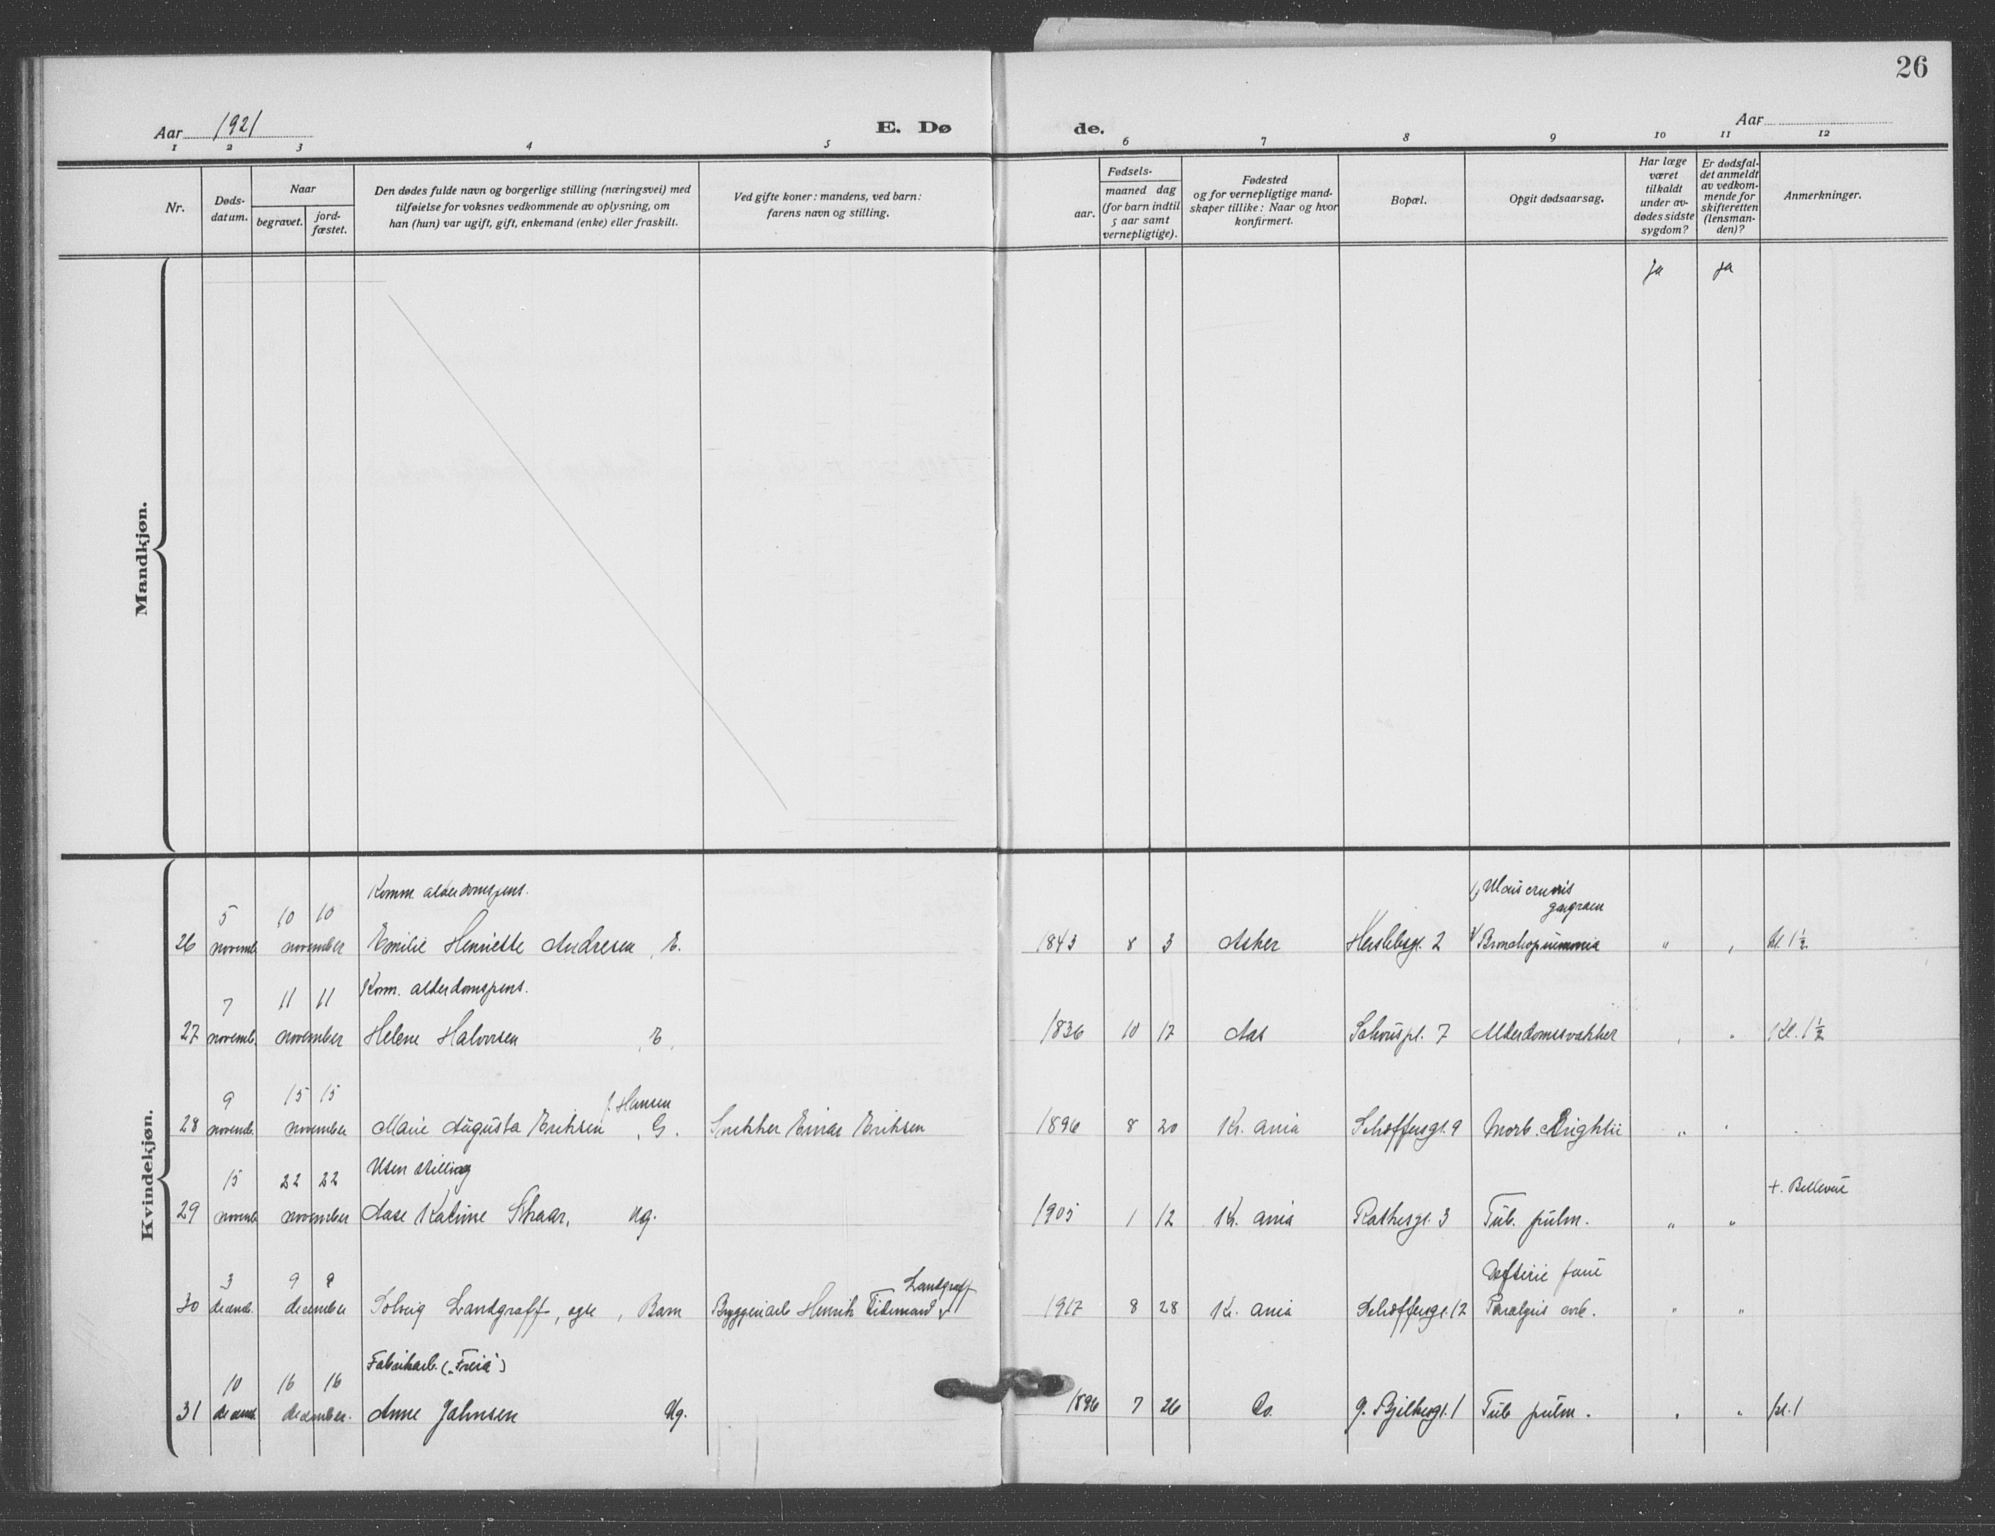 26
Aar 1921
E. Dø
de.
Aar
1 2 3 4 5 6 7 8 9 10 11 12
Nr.
Døds-
datum.
Naar
begravet.
jord-
fæstet.
Den dødes fulde navn og borgerlige stilling (næringsvei) med
tilføielse for voksnes vedkommende av oplysning, om
han (hun) var ugift, gift, enkemand (enke) eller fraskilt.
Ved gifte koner: mandens, ved barn:
farens navn og stilling.
Fødsels-
aar.
maaned dag
(for barn indtil
5 aar samt
vernepligtige).
Fødested
og for vernepligtige mand-
skaper tillike: Naar og hvor
konfirmert.
Bopæl.
Opgit dødsaarsag.
Har læge
været
tilkaldt
under av-
dødes sidste
sygdom?
Er dødsfal-
det anmeldt
av vedkom-
mende for
skifteretten
(lensman-
den)?
Anmerkninger.
ja ja
Mandkjøn.
Kvindekjøn.
Komm. alderdomspens.
1) Ulcus cruris
gangraen
5 10 10
26 novemb. november Emilie Henriette Andresen, E. 1843 8 3 Asker Herslebsgt. 2 Bronchopneumonia " kl. 1½
Kom. alderdomspens.
7 11 11
27 novemb. november Helene Halvorsen, E. 1836 10 17 Aas Schouspl. 7 Alderdomssvakhet " Kl. 1½
9 15 15 f. Hansen
28 novemb. november Marie Augusta Eriksen, G. Snekker Einar Eriksen 1896 8 20 Kr.ania Schøffersgt. 9 Morb. Brightii "
15 22 22 Uten stilling + Bellevue
29 novemb. november Aase Katrine Skaar, Ug. 1905 1 12 Kr.ania Rathkesgt. 3 Tub. pulm. " "
3 9 9 Landgraff Difteri fauc
30 decemb. december Solveig Landgraff, egte, Barn Bryggeriarb Henrik Tidemand 1917 8 28 Kr.ania Schøffersgt. 12 Paralysis cork. " "
Fabrikarb. („Freia")
10 16 16
31 decemb. december. Anne Johnsen Ug. 1896 7 26 Do. g. Bjelkesgt. 1 Tub pulm. " " kl. 1